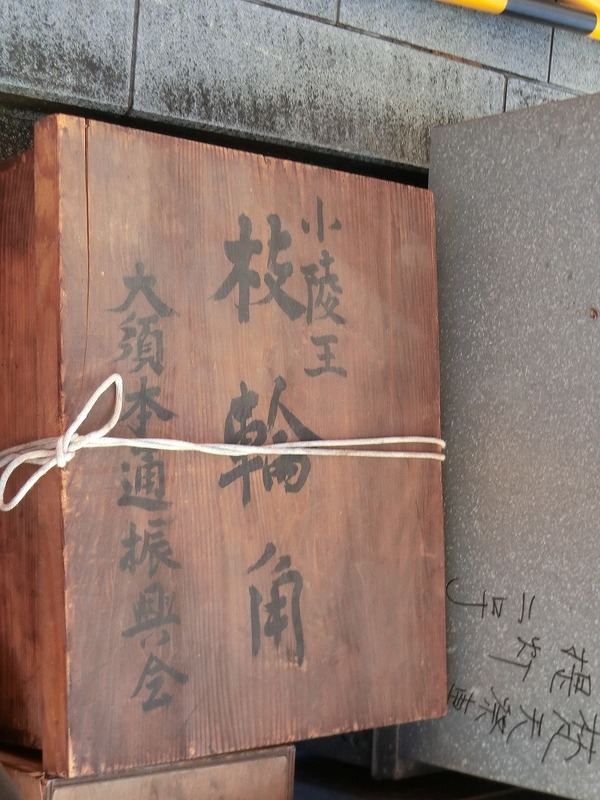 小陵王
枝輪角
大須本通振興会
二日丁
提灯